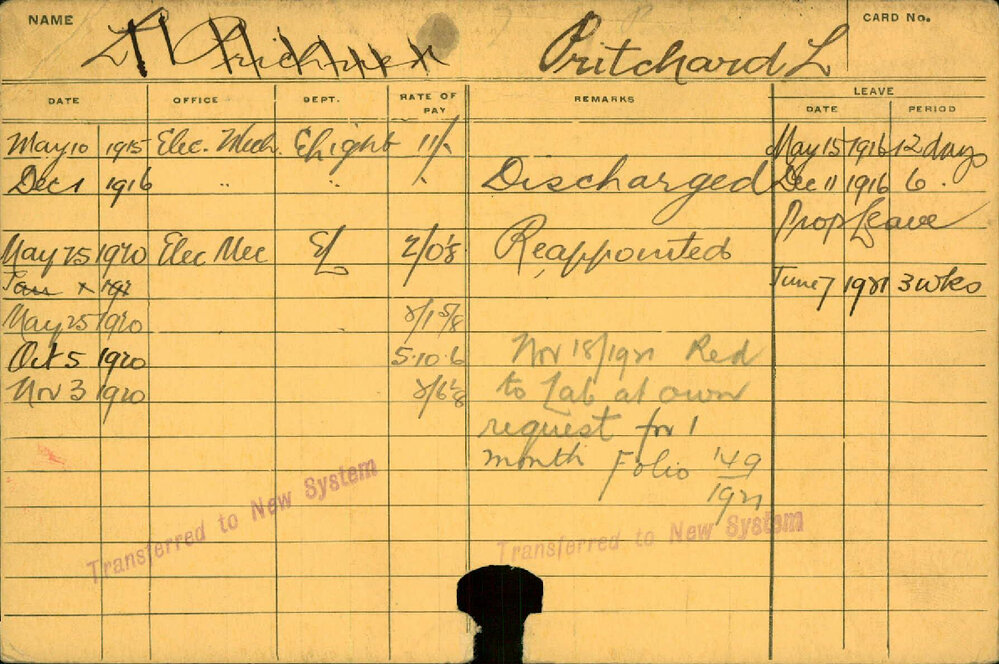 NAME Pritchard L CARD No.
DATE OFFICE DEPT. RATE OF PAY REMARKS LEAVE
DATE PERIOD
May 10 1915 Elec. Mech. Elight 11/- May 15 1916 12 days
Dec 1 1916 " " " Discharged Dec 11 1916 6.
Prop Leave
May 25 1920 Elec Mec El 2/0⅛ Reappointed
June 7 1921 3 wks
May 25 1920 2/1⅝
Oct 5 1920 5.10.6 Nov 18/1921 Red
Nov 3 1920 2/6⅛ to Lab at own
request for 1
month Folio 149
1921
Transferred to New System
Transferred to New System